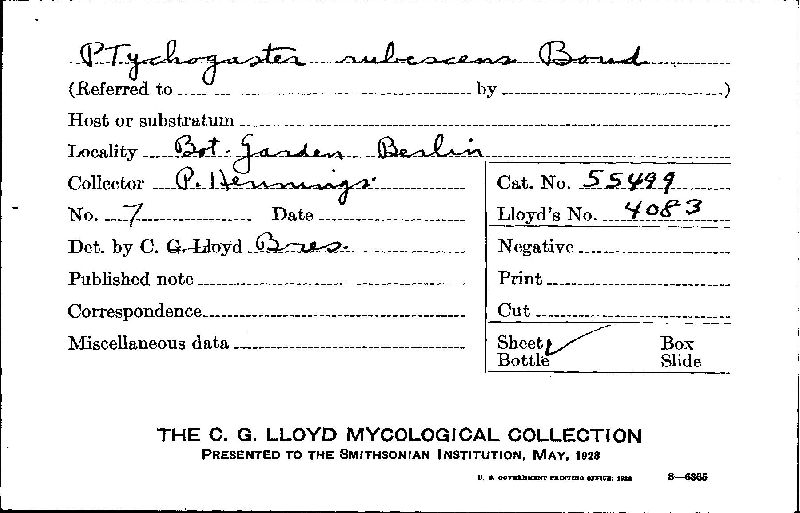 Ptychogaster rubescens Boud
(Referred to by )
Host or substratum
Locality Bot. Garden Berlin
Collector P. Hennings.
No. 7 Date
Det. by C. G. Lloyd Bres.
Published note
Correspondence
Miscellaneous data
Cat. No. 55499
Lloyd's No. 4083
Negative
Print
Cut
Sheet Box
Bottle Slide
THE C. G. LLOYD MYCOLOGICAL COLLECTION
PRESENTED TO THE SMITHSONIAN INSTITUTION, MAY, 1928
U. S. GOVERNMENT PRINTING OFFICE: 1928 8—6365